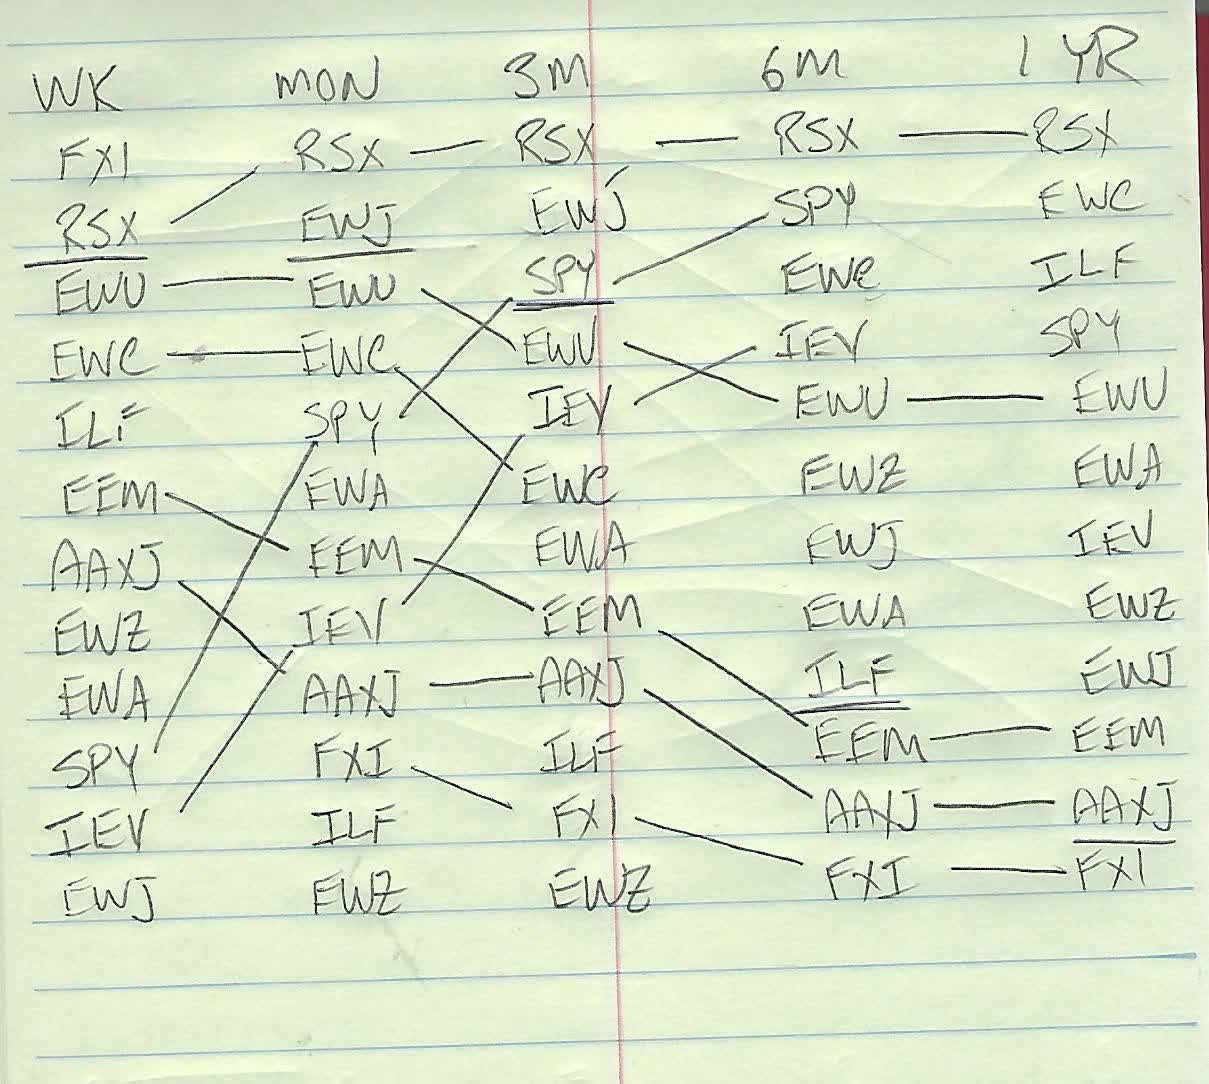 WK MON 3M 6M 1 YR
FXI RSX RSX RSX RSX
RSX EWJ EWJ SPY EWC
EWU EWU SPY EWC ILF
EWC EWC EWU IEV SPY
ILF SPY IEV EWU EWU
EEM EWA EWC EWZ EWA
AAXJ EEM EWA EWJ IEV
EWZ IEV EEM EWA EWZ
EWA AAXJ AAXJ ILF EWJ
SPY FXI ILF EEM EEM
IEV ILF FXI AAXJ AAXJ
EWJ EWZ EWZ FXI FXI